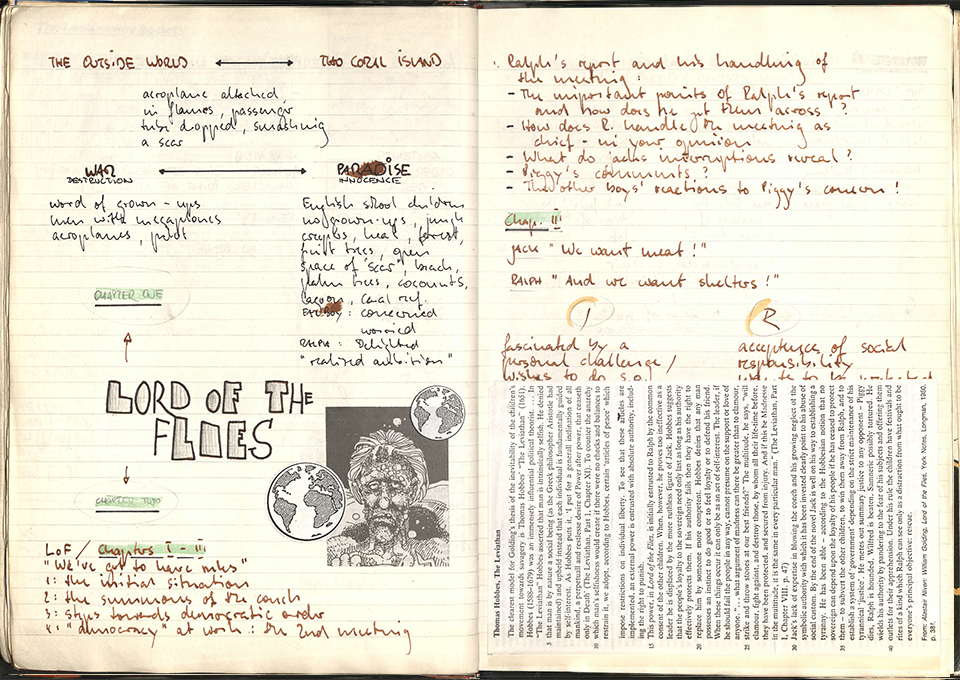 THE OUTSIDE WORLD ↔ THE CORAL ISLAND
aeroplane attached
in flames, passenger
tube dropped, smashing
a scar
WAR ↔ PARADISE
DESTRUCTION INNOCENCE
word of grown-ups
men with megaphones
aeroplanes, pilot
English school children
no grown-ups, jungle
creepers, heat, forest,
fruit trees, open
space of "scar", beach,
palm trees, coconuts,
lagoon, coral reef.
FAT BOY: concerned
worried
RALPH: Delighted
"realized ambition"
CHAPTER ONE
LORD OF THE
FLIES
CHAPTER TWO
LOF / Chapters I - II:
"We've got to have rules"
1: the initial situation
2: the summons of the conch
3: steps towards democratic order
4: "democracy" at work: the 2nd meeting
Ralph's report and his handling of
the meeting:
- The important points of Ralph's report
and how does he get them across?
- How does R. handle the meeting as
chief - in your opinion
- What do Jacks interruptions reveal?
- Piggy's comments?
- The other boys' reactions to Piggy's concern!
Chap. III
JACK "We want meat!"
RALPH "And we want shelters!"
J R
fascinated by a
personal challenge /
wishes to do s.o.
acceptances of social
responsibility
Thomas Hobbes, The Leviathan
The clearest model for Golding's thesis of the inevitability of the children's
movement towards savagery is Thomas Hobbes's "The Leviathan" (1651).
Hobbes (1588–1679) was an immensely influential political theorist. . . . In
"The Leviathan" Hobbes asserted that man is intrinsically selfish. He denied
5 that man is by nature a social being (as the Greek philosopher Aristotle had
maintained) and upheld instead that each individual is fundamentally guided
by self-interest. As Hobbes puts it, 'I put for a general inclination of all
mankind, a perpetuall and restlesse desire of Power after power, that ceaseth
only in Death' (The Leviathan, Part 1, Chapter XI). To counter the anarchy
10 which man's selfishness would create if there were no checks and balances to
restrain it, we adopt, according to Hobbes, certain 'articles of peace' which
impose restrictions on individual liberty. To see that these articles are
implemented, an external power is entrusted with absolute authority, includ-
ing the right to punish.
15 This power, in Lord of the Flies, is initially entrusted to Ralph by the common
consent of the other children. When, however, he proves too ineffective as a
leader he is displaced by the more ruthless figure of Jack. Hobbes suggests
that the people's loyalty to the sovereign need only last as long as his authority
effectively protects them. If his authority fails then they have the right to
20 replace him by someone more competent. Hobbes denies that any man
possesses an instinct to do good or to feel loyalty or to defend his friend.
When these things occur it can only be as an act of self-interest. The leader, if
he should fail the people in any way, cannot presume on the support or love of
anyone. ". . . what argument of madness can there be greater than to clamour,
25 strike and throw stones at our best friends? The multitude, he says, "will
clamour, fight against, and destroy those, by whom all their life-time before,
they have been protected, and secured from injury. And if this be Madnesse
in the multitude, it is the same in every particular man." (The Leviathan, Part
I, Chapter VIII, p. 47)
30 Jack's lack of expertise in blowing the conch and his growing neglect of the
symbolic authority with which it has been invested clearly point to a waning of
social custom. By the end of the novel Jack is well on his way to establishing a
tyranny. He has been able – according to the Hobbesian notion that no
sovereign can depend upon the loyalty of his people if he has ceased to protect
35 them – to subvert the other children, to win them away from Ralph, and to
establish a system of 'government' depending on the strict maintenance of his
tyrannical 'justice'. He metes out summary justice to any opponent – Piggy
dies, Ralph is hounded, Wilfred is beaten, Samneric possibly tortured. He
wields his authority by pandering to the fear of his subjects and offering them
40 outlets for their apprehension. Under his rule the children have festivals and
rites of a kind which Ralph can see only as a distraction from what ought to be
everyone's principal objective: rescue.
From: Alastair Niven: William Golding, Lord of the Flies, York Notes, Longman, 1980,
p. 38f.